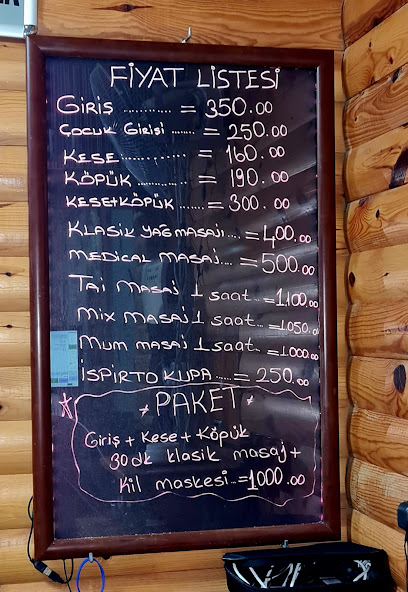 FİYAT LİSTESİ
GİRİŞ .......... = 350.00
ÇOCUK GİRİŞİ ....... = 250.00
KESE............ = 160.00
KÖPÜK ............ = 190.00
KESE+KÖPÜK ....... = 300.00
KLASİK YAĞ MASAJI.... = 400.00
MEDİCAL MASAJ.... = 500.00
TAİ MASAJ 1 saat ... = 1.100.00
MİX MASAJ 1 saat ... = 1.050.00
MUM MASAJ 1 saat... = 1.000.00
İSPİRTO KUPA ...... = 250.00
PAKET
Giriş + Kese + Köpük
30dk klasik masaj +
Kil maskesi ... = 1000.00